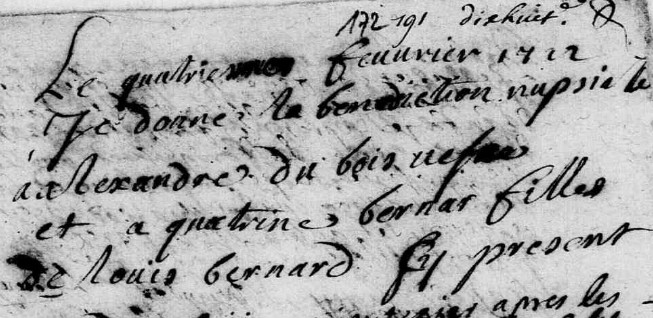 172 191 dixhuit
Le quatriemes feuurier 1712
Je donne la benediction nupsialle
a alexandre du bois uefue
et a quatrine bernar filles
de louis bernard sy present
apres les